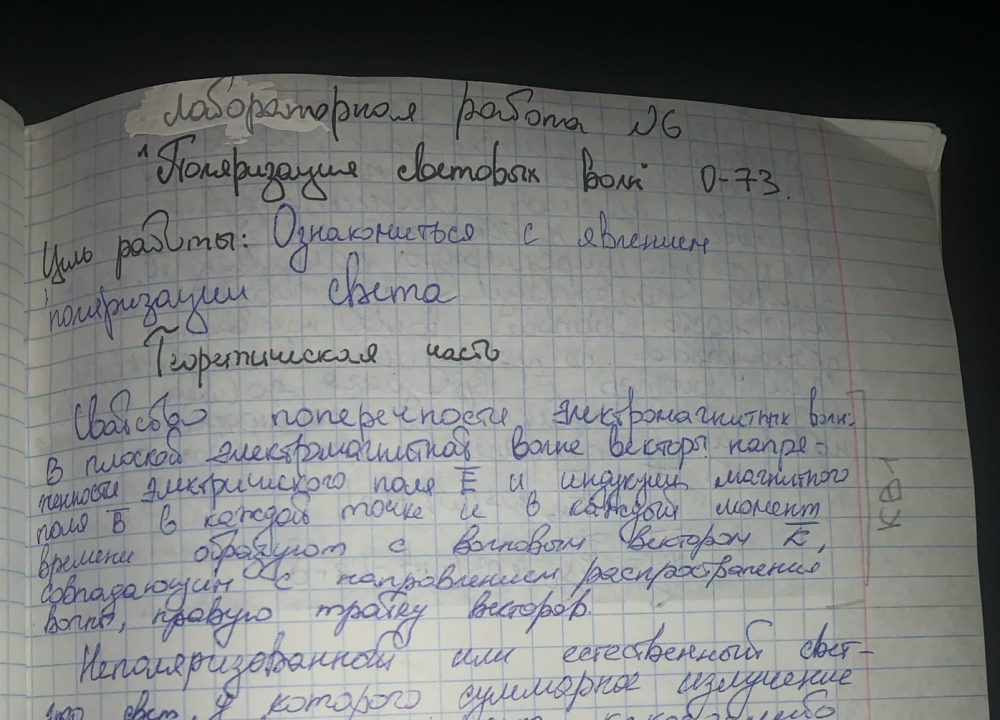 Лабораторная работа №6
"Поляризация световых волн" О-73.
Цель работы: Ознакомиться с явлением
поляризации света
Теоретическая часть
Свойсво поперечности электромагнитных волн.
В плоской электромагнитной волне векторы напря-
женности электрического поля E̅ и индукции магнитного
поля B̅ в каждой точке и в каждый момент
времени образуют с волновым вектором k̅,
совпадающим с направлением распространения
волны, правую тройку векторов.
Неполяризованной или естественный свет-
это свет, у которого суммарное излучение